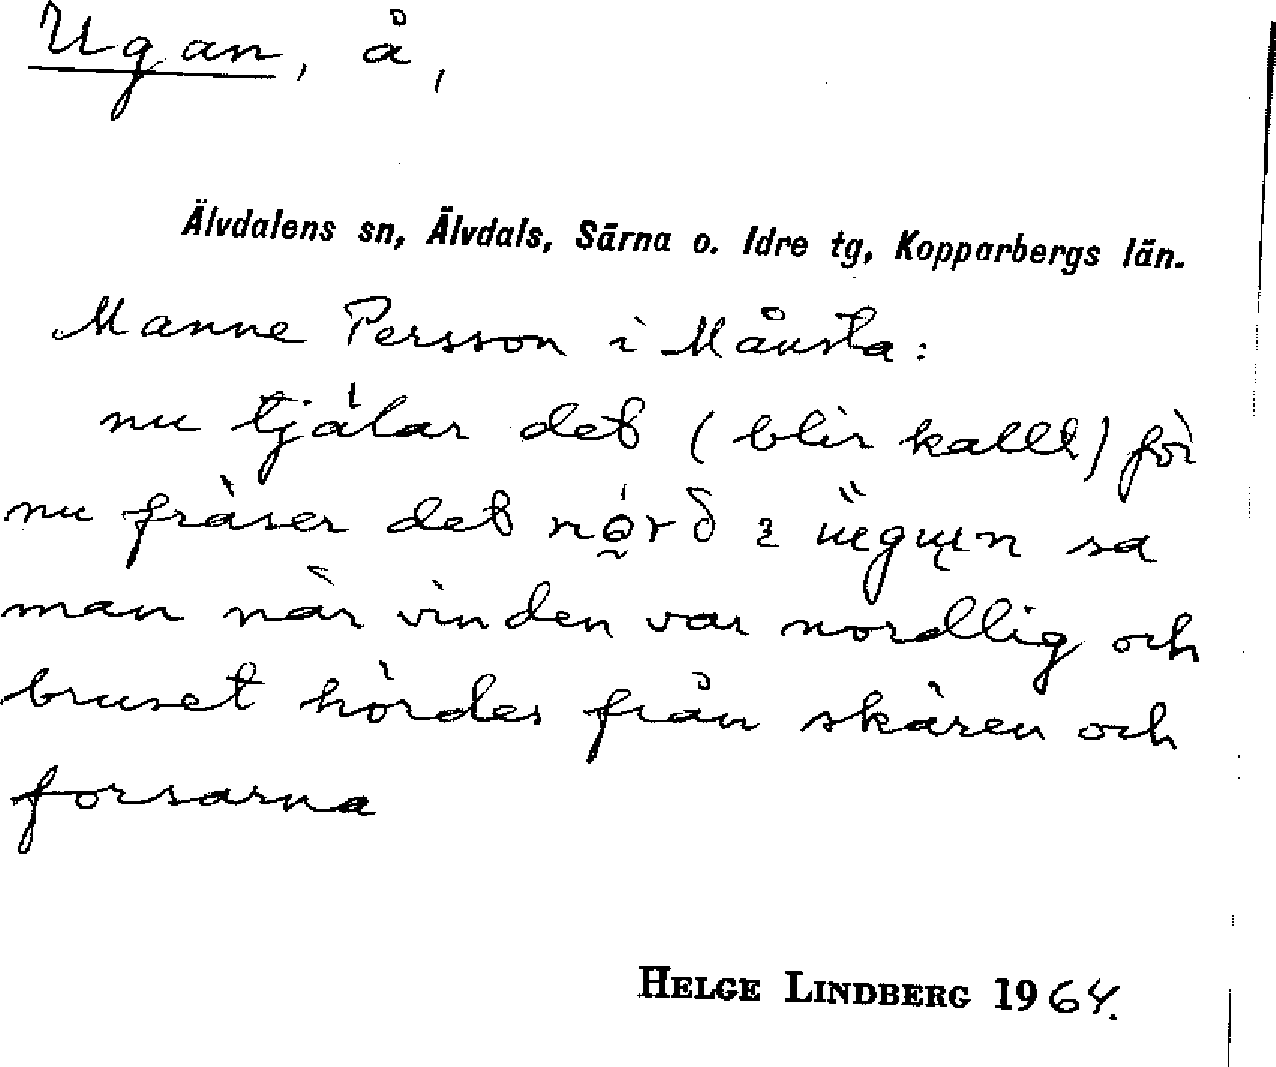 Ugan, å,
Älvdalens sn, Älvdals, Särna o. Idre tg, Kopparbergs län.
Manne Persson i Månsta:
nu tjälar det (blir kallt) för
nu fräser det sa
man när vinden var nordlig och
bruset hördes från skären och
forsarna
HELGE LINDBERG 1964.